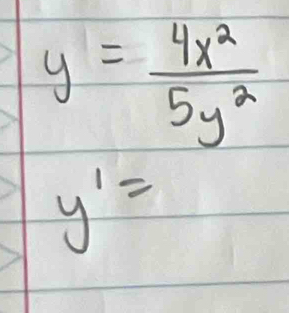 y = 4x²/5y²
y' =